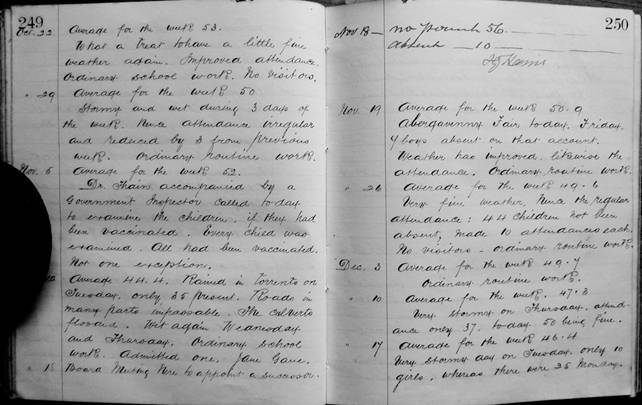 249
Oct. 22 Average for the week 53.
What a treat to have a little fine
weather again. Improved attendance.
Ordinary school work. No visitors.
" 29 Average for the week 50
Stormy and wet during 3 days of
the week. Hence attendance irregular
and reduced by 3 from previous
week. Ordinary routine work.
Nov. 5 Average for the week 52.
Dr. Thain accompanied by a
Government Inspector called today
to examine the children, if they had
been vaccinated. Every child was
examined. All had been vaccinated.
Not one exception.
Average 44.4. Rained in torrents on
Tuesday. only 35 present. Roads in
many parts impassable. The culverts
flooded. Wet again Wednesday
and Thursday. Ordinary school
work. Admitted one, Jane
" 18 Board Meeting here to appoint a successor.
250
Nov 18 — no present 56.
absent — 10 —
Nov. 19 Average for the week 50.9
Abergavenny Fair today. Friday.
9 boys absent on that account.
Weather has improved, likewise the
attendance. Ordinary routine work.
" 26 Average for the week 49.6
Very fine weather. Hence the regular
attendance: 44 children not been
absent, made 10 attendances each.
No visitors - ordinary routine work.
Dec. 3 Average for the week 49.7
Ordinary routine work.
" 10 Average for the week. 47.3
Very stormy on Thursday. attend-
ance only 37. today 50 being fine.
" 17 Average for the week 46.4
Very stormy day on Tuesday. only 10
girls, whereas there were 25 Monday.